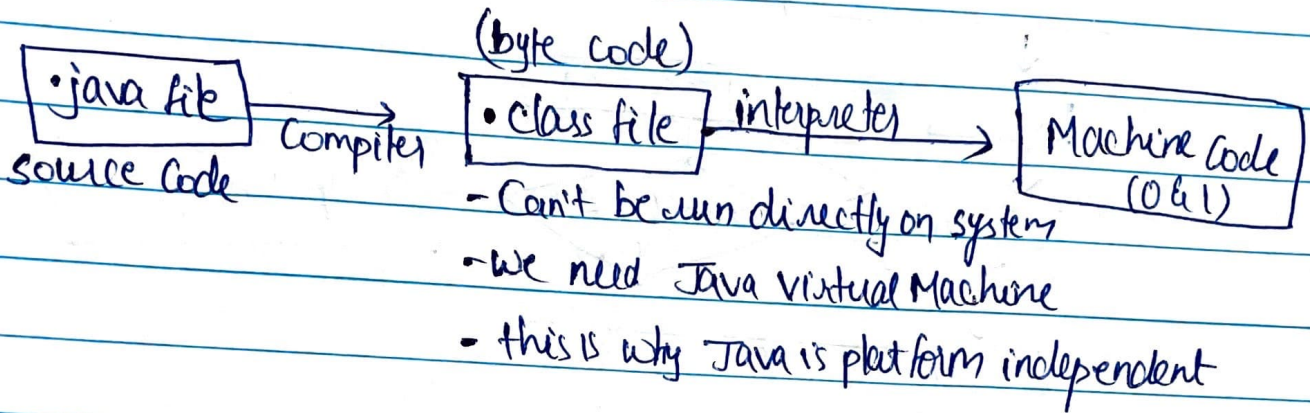 (byte code)
.java file
Compiler
source Code
.class file
interpreter
Machine Code
(0 & 1)
- Can't be run directly on system
- We need Java Virtual Machine
- this is why Java is platform independent